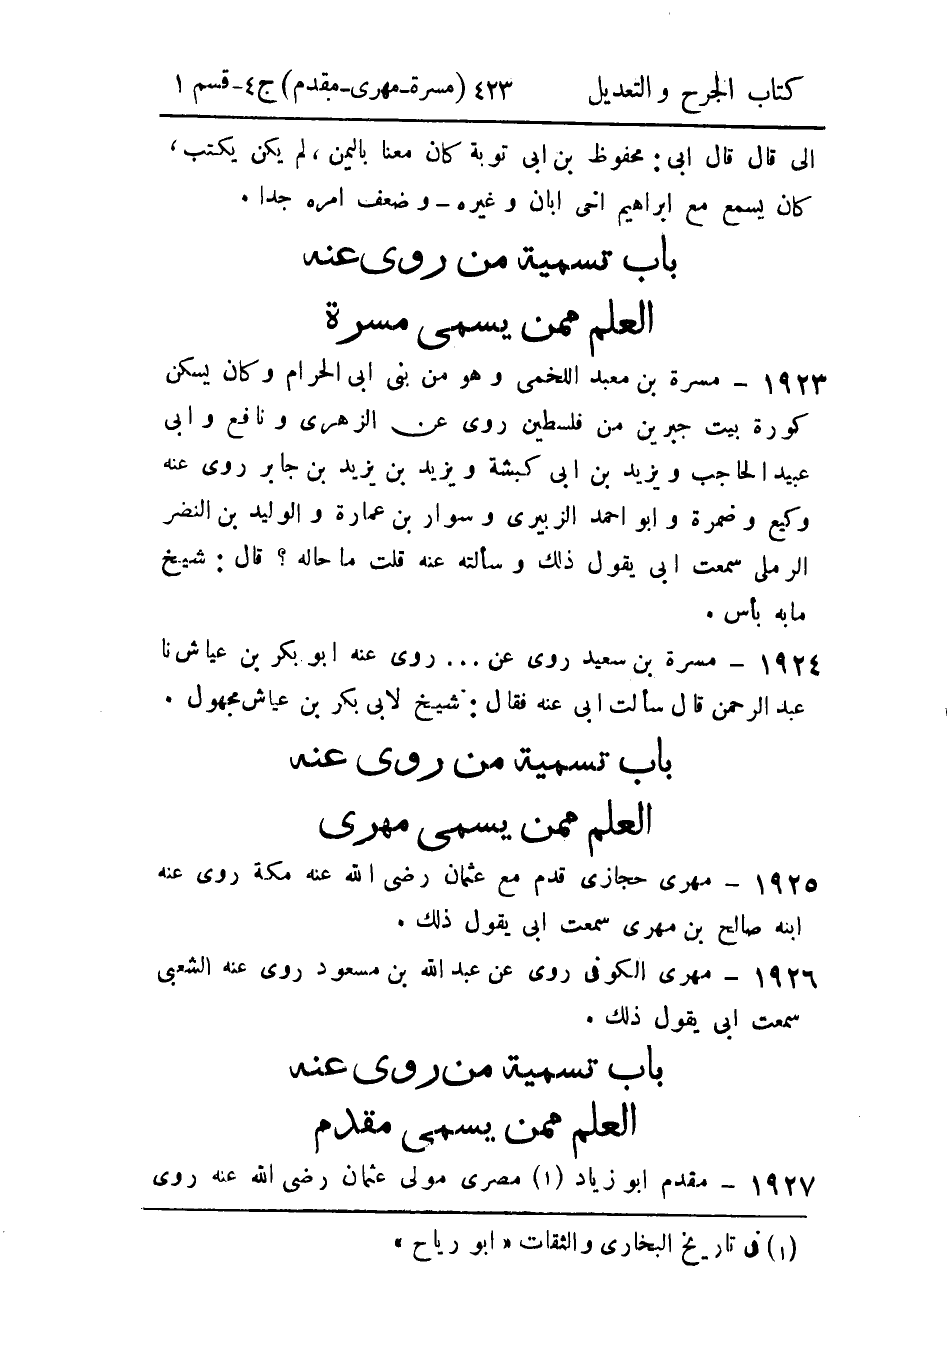 كتاب الجرح و التعديل ٤٢٣ (مسرة-مهرى-مقدم) ج٤-قسم ١
الى قال قال ابى : محفوظ بن ابى توبة كان معنا باليمن ، لم يكن يكتب ،
كان يسمع مع ابراهيم اخى ابان و غيره - و ضعف امره جدا .
باب تسمية من روى عنه
العلم ممن يسمى مسرة
١٩٢٣ - مسرة بن معبد اللخمى و هو من بنى ابى الحرام و كان يسكن
كورة بيت جبرين من فلسطين روى عن الزهرى و نافع و ابى
عبيد الحاجب و يزيد بن ابى كبشة و يزيد بن يزيد بن جابر روى عنه
وكيع و ضمرة و ابو احمد الزبيرى و سوار بن عمارة و الوليد بن النضر
الرملى سمعت ابى يقول ذلك و سألته عنه قلت ما حاله ؟ قال : شيخ
مابه بأس .
١٩٢٤ - مسرة بن سعيد روى عن ... روى عنه ابو بكر بن عياش نا
عبد الرحمن قال سألت ابى عنه فقال : شيخ لابى بكر بن عياش مجهول .
باب تسمية من روى عنه
العلم ممن يسمى مهرى
١٩٢٥ - مهرى حجازى قدم مع عثمان رضى الله عنه مكة روى عنه
ابنه صالح بن مهرى سمعت ابى يقول ذلك .
١٩٢٦ - مهرى الكوفى روى عن عبد الله بن مسعود روى عنه الشعبى
سمعت ابى يقول ذلك .
باب تسمية من روى عنه
العلم ممن يسمى مقدم
١٩٢٧ - مقدم ابو زياد (١) مصرى مولى عثمان رضى الله عنه روى
(١) فى تاريخ البخارى والثقات « ابو رياح »